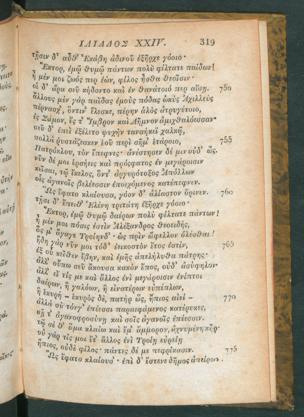 ΙΛΙΑΔΟΣ XXIV. 319
τῇσιν δ' αὖθ' Ἑκάβη ἀδινοῦ ἐξῆρχε γόοιο·
Ἕκτορ, ἐμῷ θυμῷ πάντων πολὺ φίλτατε παίδων!
ἦ μέν μοι ζωός περ ἐών, φίλος ἦσθα θεοῖσιν·
οἱ δ' ἄρα σεῦ κήδοντο καὶ ἐν θανάτοιό περ αἴσῃ. 750
ἄλλους μὲν γὰρ παῖδας ἐμοὺς πόδας ὠκὺς Ἀχιλλεὺς
πέρνασχ', ὅντιν' ἕλεσκε, πέρην ἁλὸς ἀτρυγέτοιο,
ἐς Σάμον, ἔς τ' Ἴμβρον καὶ Λῆμνον ἀμιχθαλόεσσαν·
σεῦ δ' ἐπεὶ ἐξέλετο ψυχὴν ταναηκέϊ χαλκῷ,
πολλὰ ῥυστάζεσκεν ἑοῦ περὶ σῆμ' ἑτάροιο, 755
Πατρόκλου, τὸν ἔπεφνες· ἀνέστησεν δέ μιν οὐδ' ὥς.
νῦν δέ μοι ἑρσήεις καὶ πρόσφατος ἐν μεγάροισιν
κεῖσαι, τῷ ἴκελος, ὅντ' ἀργυρότοξος Ἀπόλλων
οἷς ἀγανοῖς βελέεσσιν ἐποιχόμενος κατέπεφνεν.
Ὣς ἔφατο κλαίουσα, γόον δ' ἀλίαστον ὄρινεν. 760
τῇσι δ' ἔπειθ' Ἑλένη τριτάτη ἐξῆρχε γόοιο·
Ἕκτορ, ἐμῷ θυμῷ δαέρων πολὺ φίλτατε πάντων!
ἦ μέν μοι πόσις ἐστὶν Ἀλέξανδρος θεοειδής,
ὅς μ' ἄγαγε Τροίηνδ'· ὡς πρὶν ὤφελλον ὀλέσθαι!
ἤδη γὰρ νῦν μοι τόδ' ἐεικοστὸν ἔτος ἐστίν, 765
ἐξ οὗ κεῖθεν ἔβην, καὶ ἐμῆς ἀπελήλυθα πάτρης·
ἀλλ' οὔπω σεῦ ἄκουσα κακὸν ἔπος, οὐδ' ἀσύφηλον·
ἀλλ' εἴ τίς με καὶ ἄλλος ἐνὶ μεγάροισιν ἐνίπτοι
δαέρων, ἢ γαλόων, ἢ εἰνατέρων εὐπέπλων,
ἢ ἑκυρὴ – ἑκυρὸς δέ, πατὴρ ὥς, ἤπιος αἰεί – 770
ἀλλὰ σὺ τόνγ' ἐπέεσσι παραιφάμενος κατέρυκες,
σῇ τ' ἀγανοφροσύνῃ καὶ σοῖς ἀγανοῖς ἐπέεσσιν.
τῷ σέ θ' ἅμα κλαίω καὶ ἔμ' ἄμμορον, ἀχνυμένη κῆρ·
οὐ γάρ τίς μοι ἔτ' ἄλλος ἐνὶ Τροίῃ εὐρείῃ
ἤπιος, οὐδὲ φίλος· πάντες δέ με πεφρίκασιν. 775
Ὣς ἔφατο κλαίουσ'· ἐπὶ δ' ἔστενε δῆμος ἀπείρων.